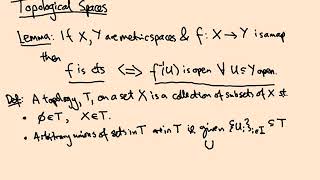 Topological Spaces
Lemma: If X, Y are metric spaces & f: X → Y is a map
then
f is cts <=> f⁻¹(U) is open ∀ U ⊆ Y open.
Def: A topology, T, on a set X is a collection of subsets of X st.
• ∅ ∈ T, X ∈ T.
• Arbitrary unions of sets in T are in T ie given {Uᵢ}ᵢ∈I ⊆ T
∪